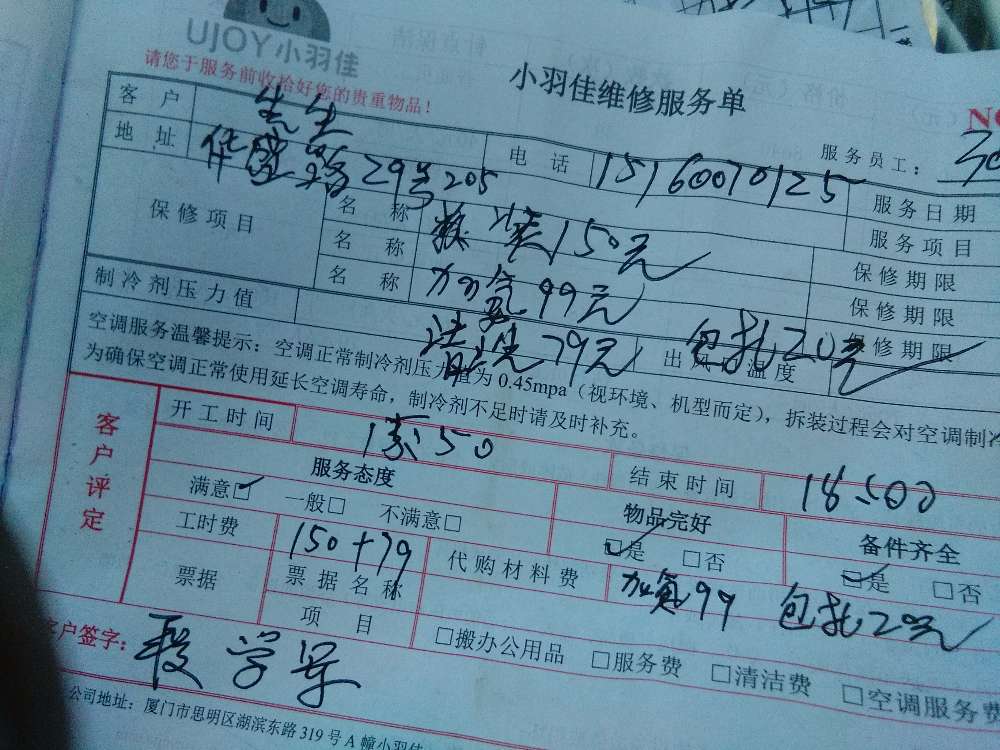 UJOY小羽佳
请您于服务前收拾好您的贵重物品！
小羽佳维修服务单
NO
服务员工：
客户 先生
电话 15160070125
服务日期
地址 华盛路29号205
服务项目
保修项目
名称 移装150元
保修期限
名称 加氟99元
保修期限
名称 清洗79元 包扎20元
修期限
制冷剂压力值
出风 温度
空调服务温馨提示：空调正常制冷剂压力值为0.45mpa（视环境、机型而定），拆装过程会对空调制冷
为确保空调正常使用延长空调寿命，制冷剂不足时请及时补充。
客户评定
开工时间
结束时间 18:00
服务态度
物品完好
备件齐全
满意☑ 一般□ 不满意□
☑是 □否
☑是 □否
工时费 150+79
代购材料费 加氟99 包扎20元
票据
票据名称
项目
□搬办公用品 □服务费 □清洁费 □空调服务费
客户签字：段学军
公司地址：厦门市思明区湖滨东路319号A幢小羽佳